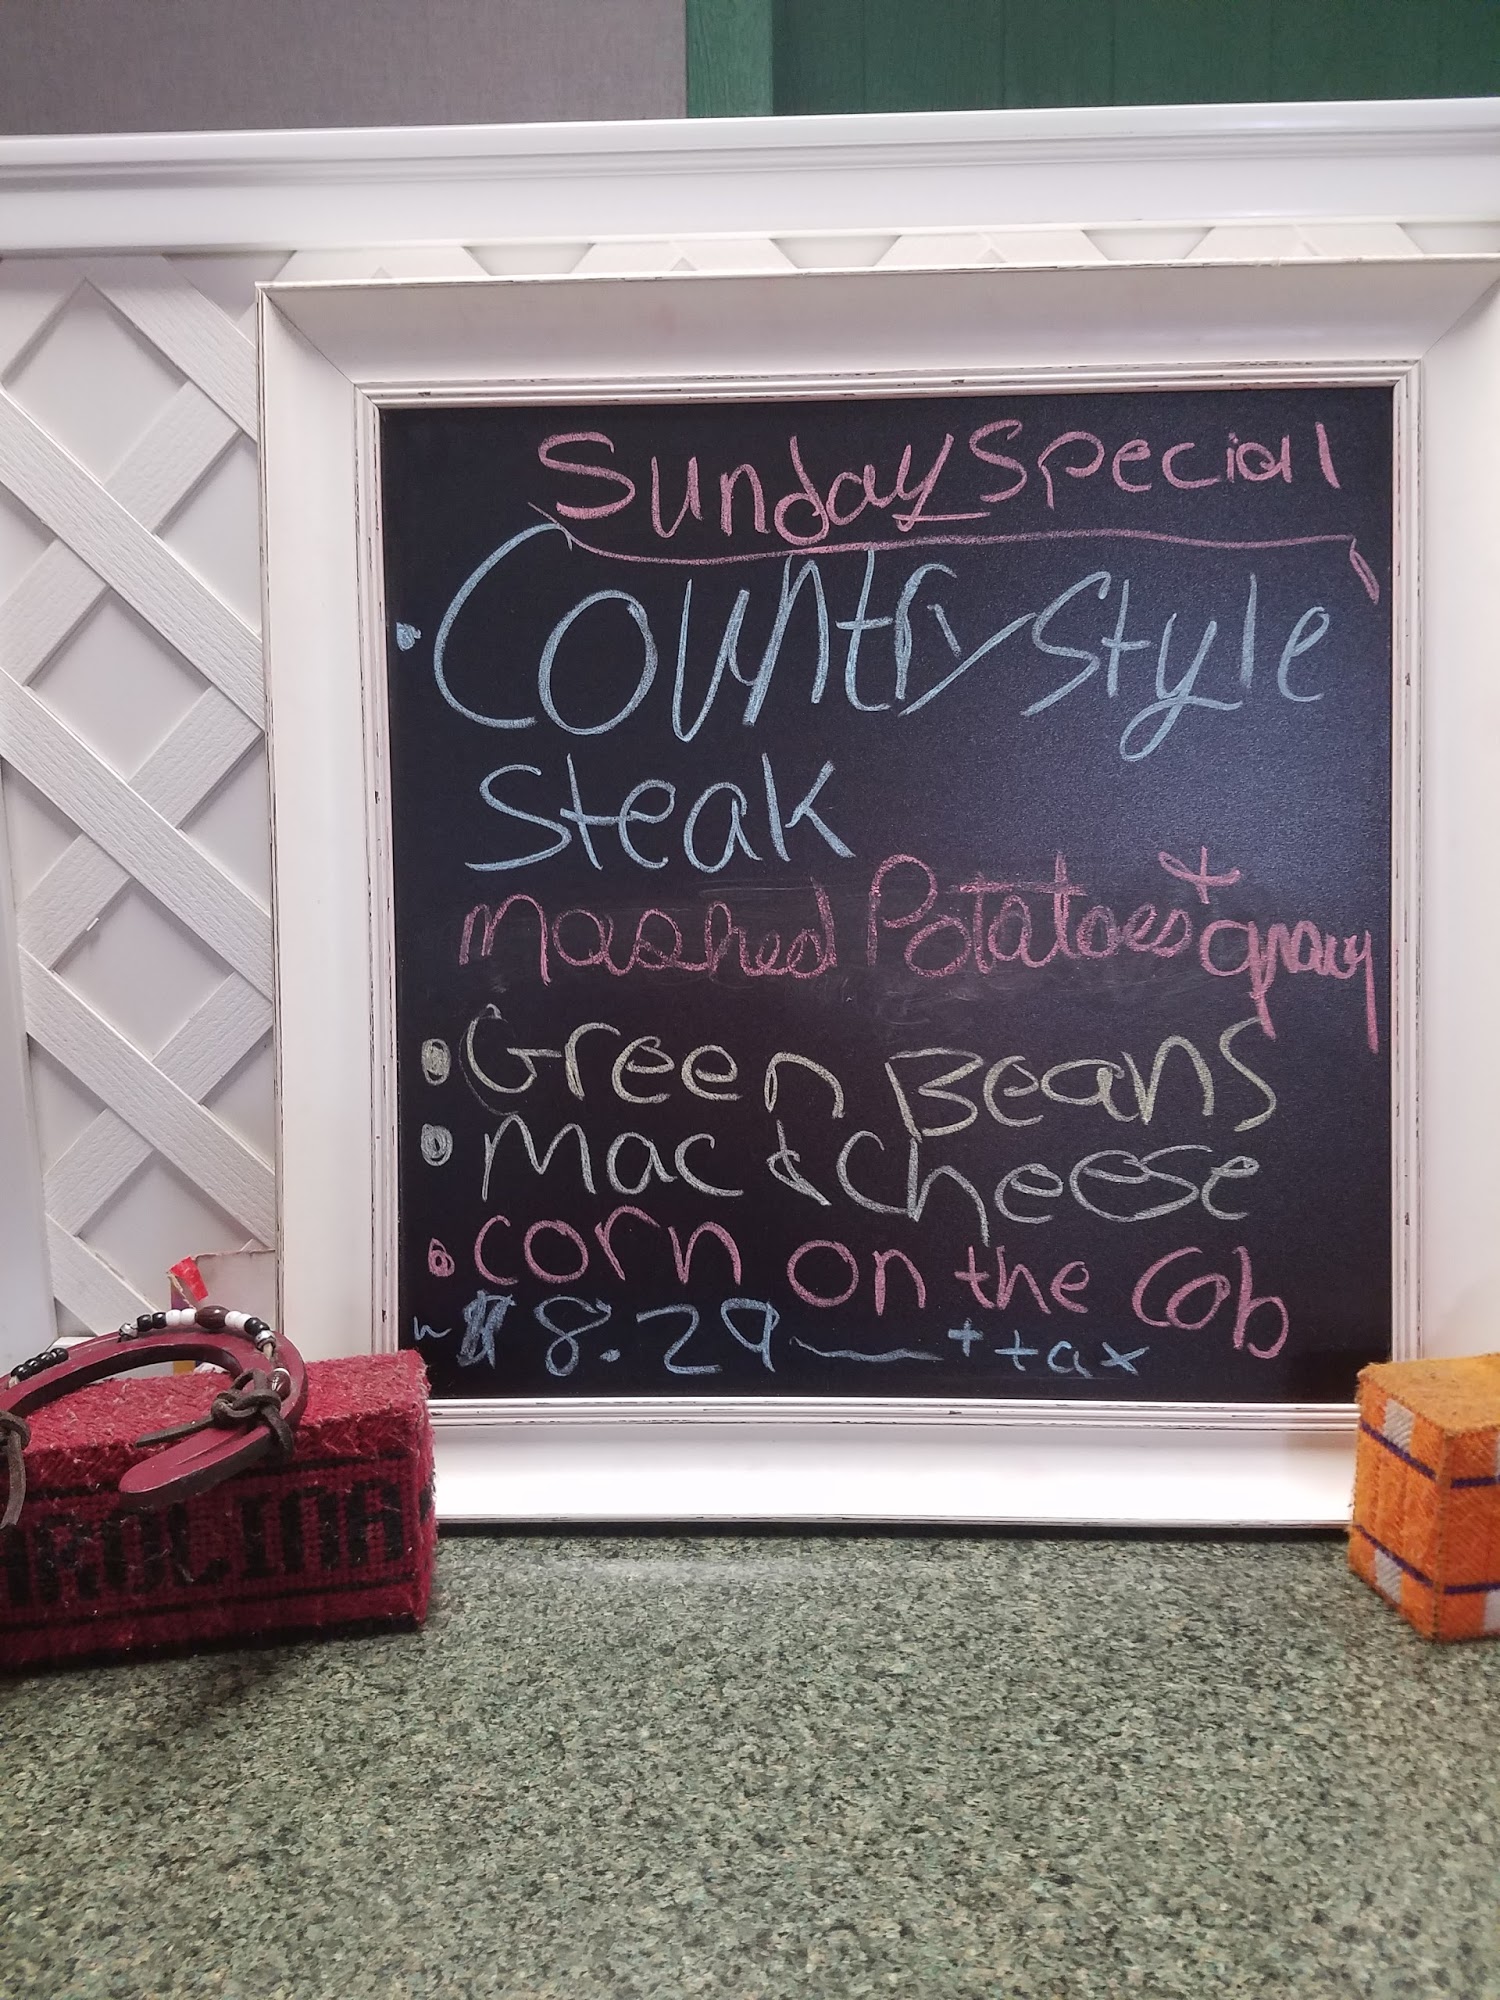 Sunday Special
• Country Style
Steak
Mashed Potatoes + gravy
• Green Beans
• Mac & Cheese
• Corn on the Cob
~ $8.29 — + tax
AROLINA